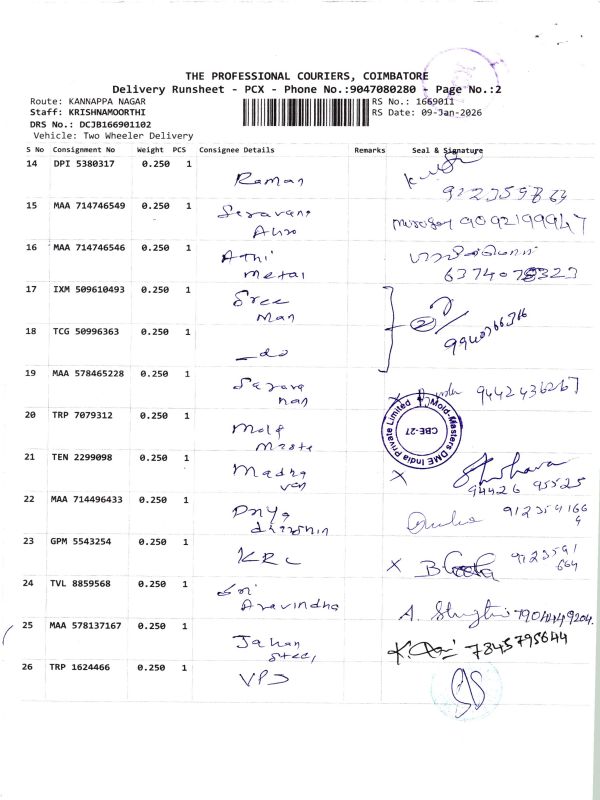 THE PROFESSIONAL COURIERS, COIMBATORE
Delivery Runsheet - PCX - Phone No.:9047080280 - Page No.:2
Route: KANNAPPA NAGAR RS No.: 1669011
Staff: KRISHNAMOORTHI RS Date: 09-Jan-2026
DRS No.: DCJB166901102
Vehicle: Two Wheeler Delivery
S No Consignment No Weight PCS Consignee Details Remarks Seal & Signature
14 DPI 5380317 0.250 1
Raman
15 MAA 714746549 0.250 1
9092199947
16 MAA 714746546 0.250 1
Athi
metal
17 IXM 509610493 0.250 1
Sree
man
18 TCG 50996363 0.250 1
do
19 MAA 578465228 0.250 1
Sarava
nan
9442436267
20 TRP 7079312 0.250 1
Mold
Maste
Mold-Masters DME India Private Limited
CBE-27
21 TEN 2299098 0.250 1
Madha
van
94426 95525
22 MAA 714496433 0.250 1
23 GPM 5543254 0.250 1
KRC
24 TVL 8859568 0.250 1
Sri
Aravindha
25 MAA 578137167 0.250 1
Jahan
Steel
7845795644
26 TRP 1624466 0.250 1
VPJ